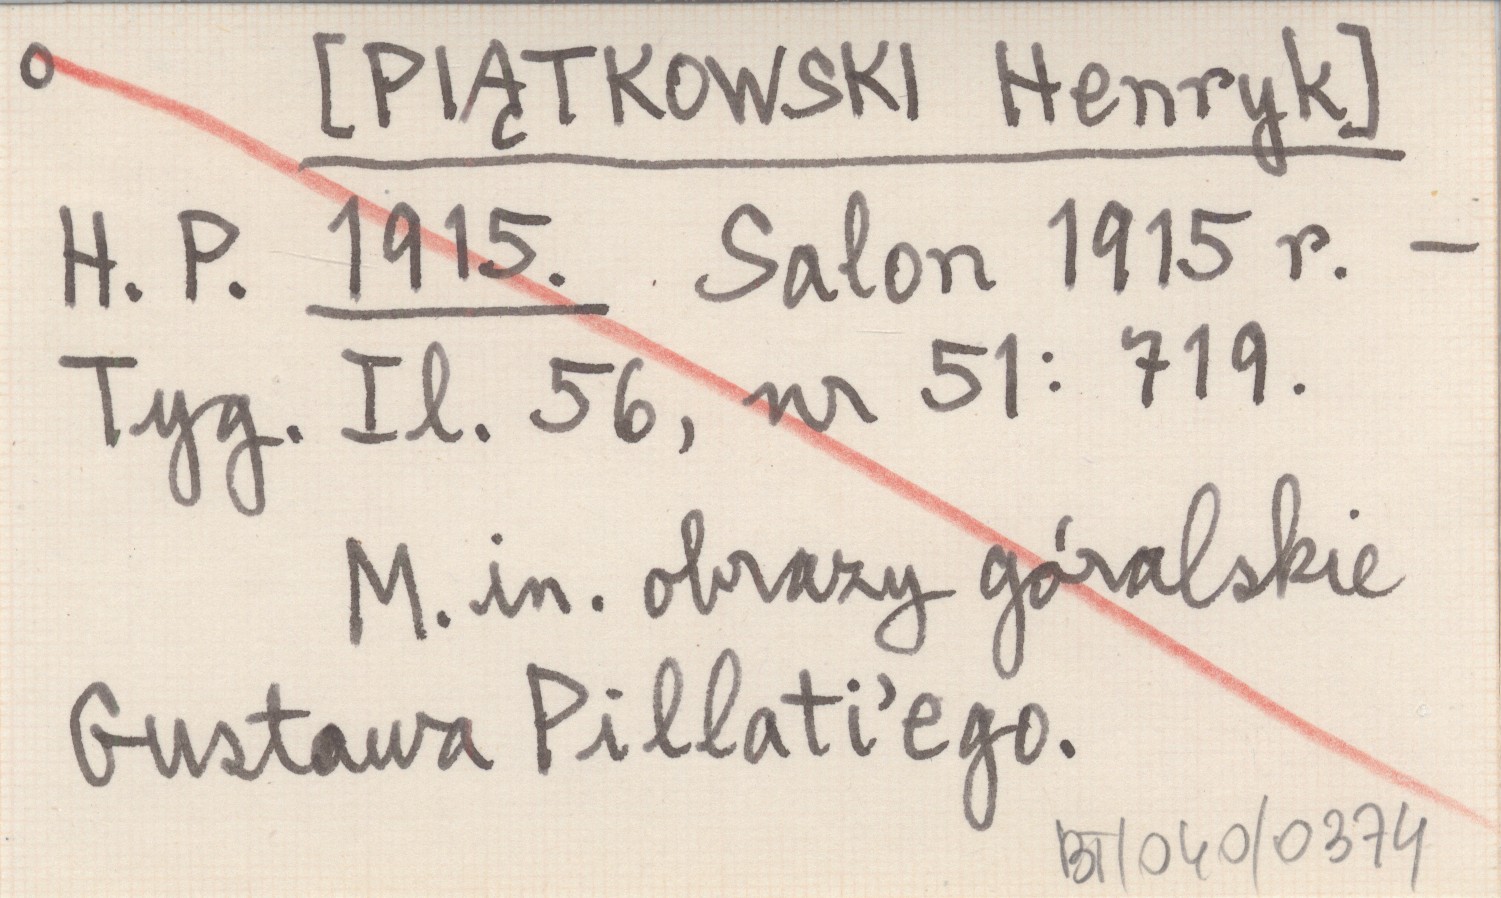 o [PIĄTKOWSKI Henryk]
H. P. 1915. Salon 1915 r. –
Tyg. Il. 56, nr 51: 719.
M. in. obrazy góralskie
Gustawa Pillati'ego.
BT/040/0374